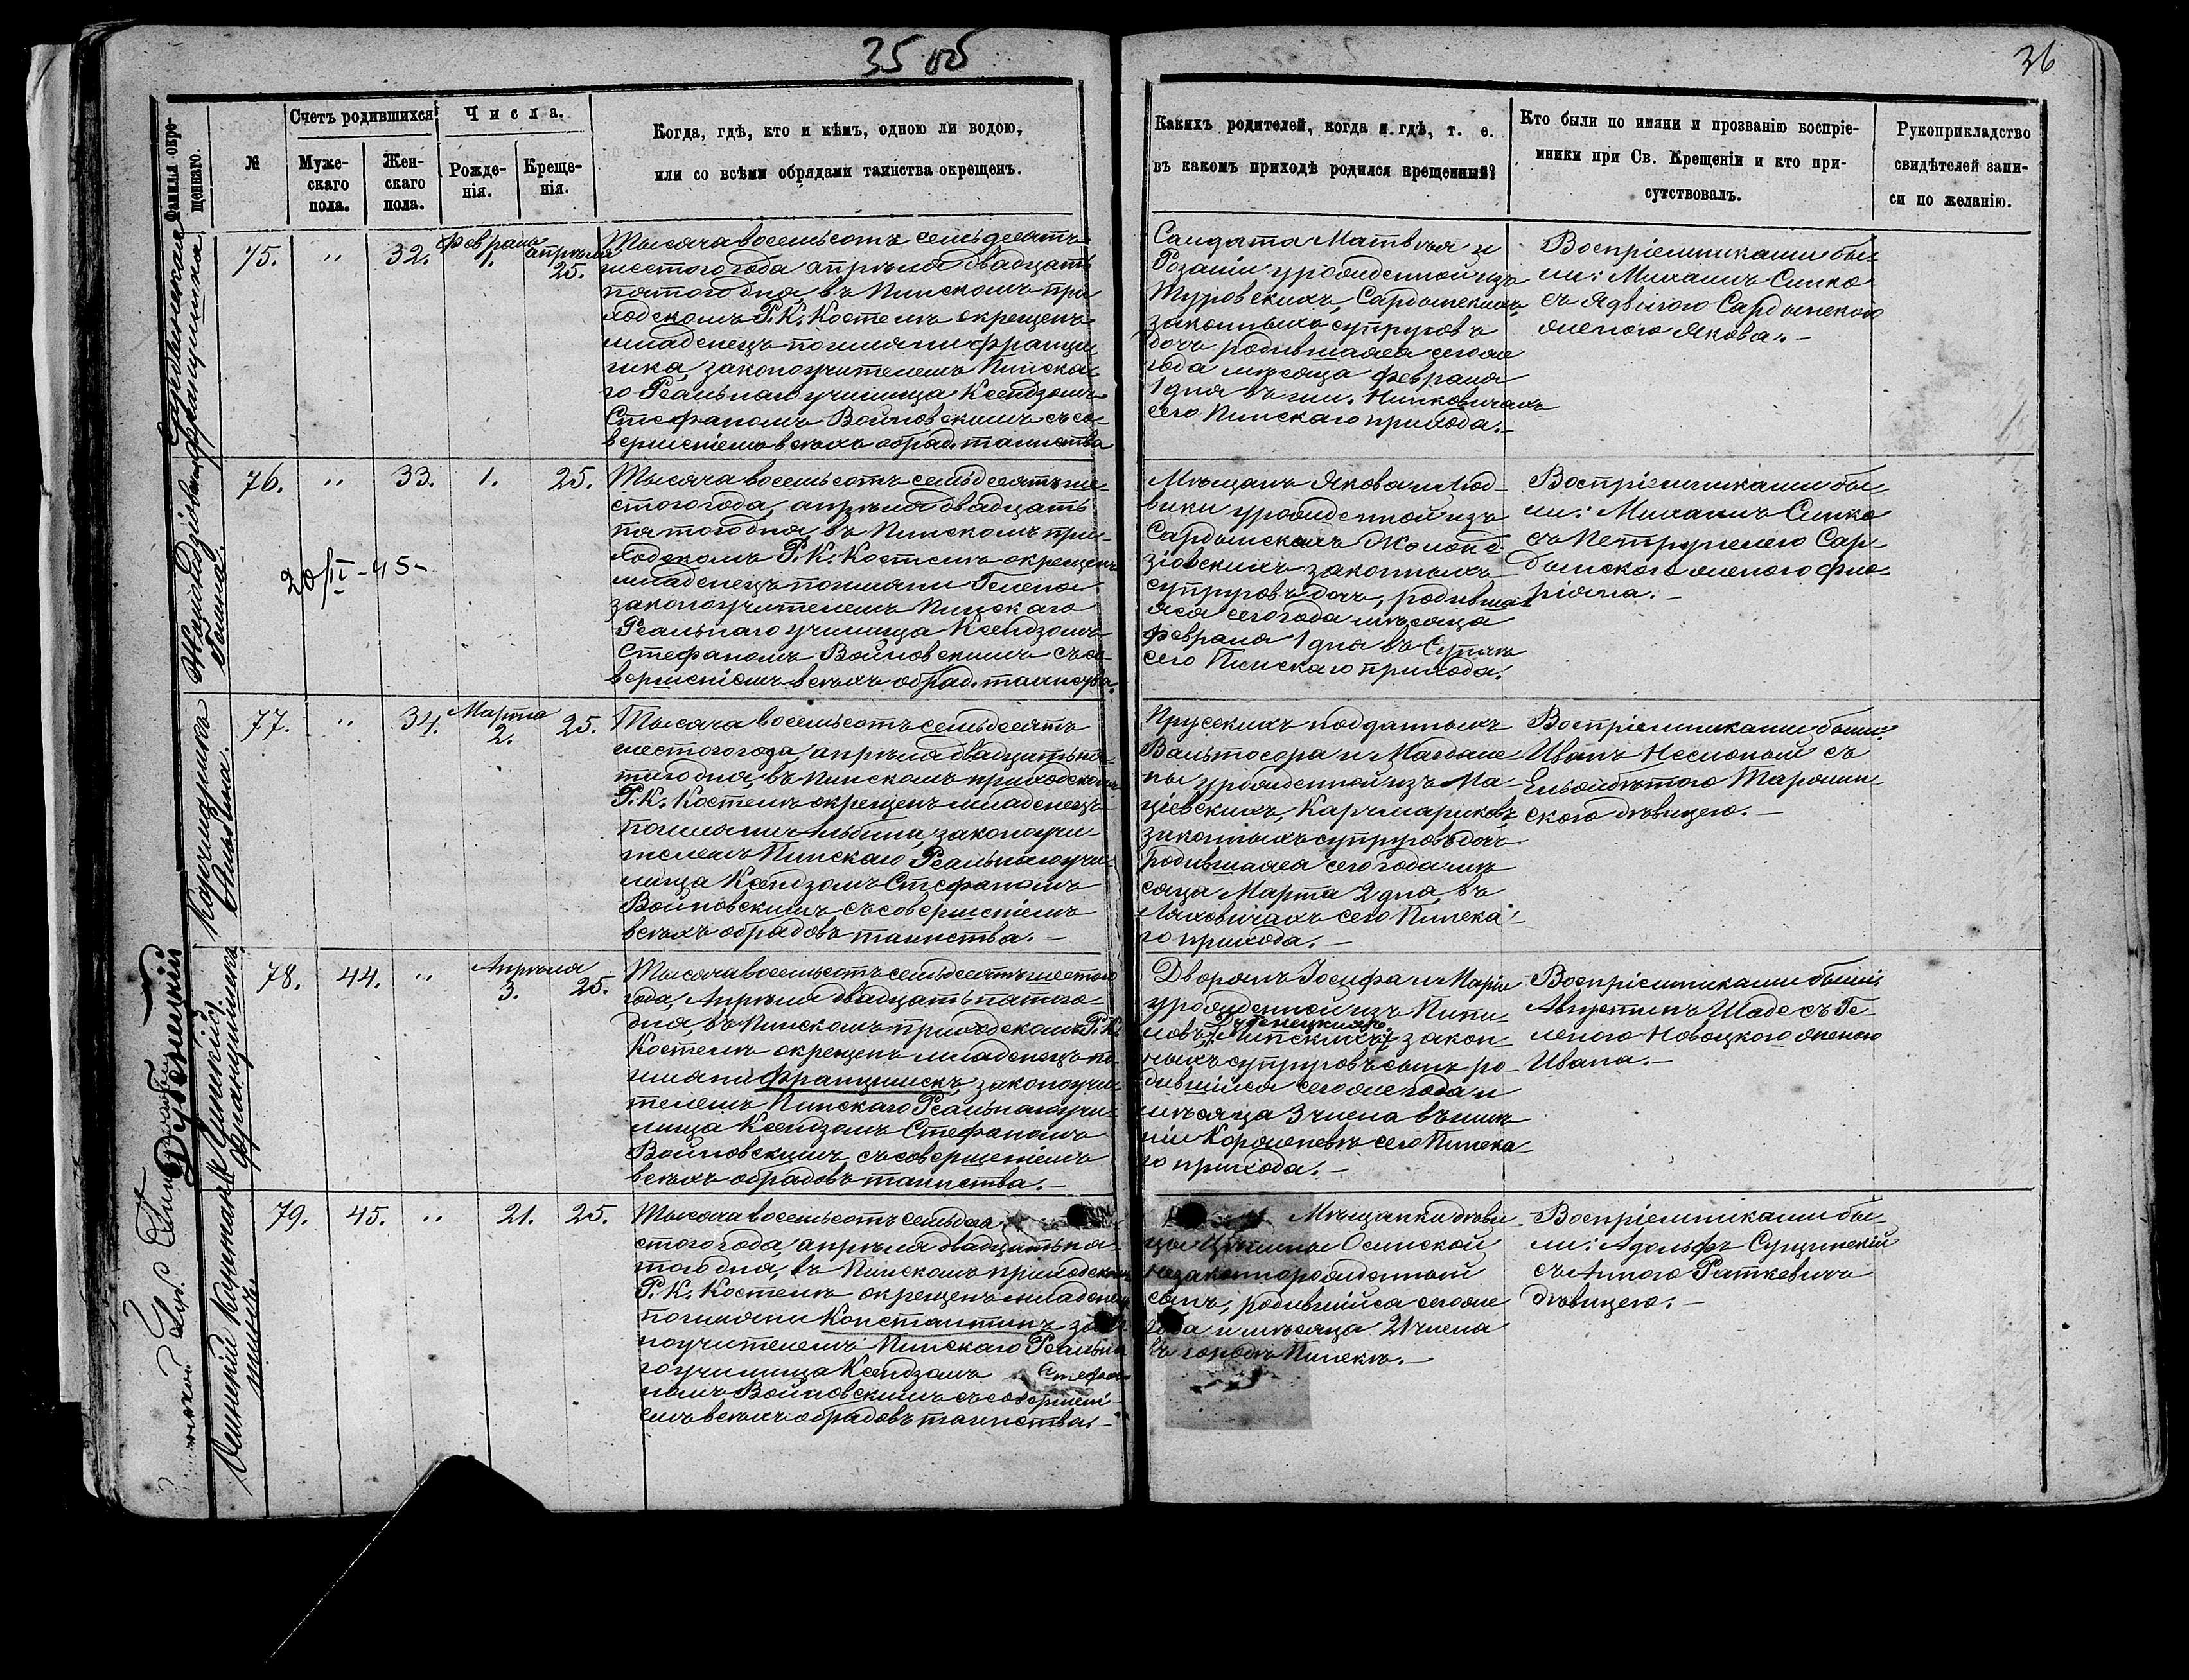 35 об
36
Фамилія окрещеннаго.
№
Счетъ родившихся
Мужескаго пола.
Женскаго пола.
Числа.
Рожденія.
Крещенія.
Когда, гдѣ, кто и кѣмъ, одною ли водою,
или со всѣми обрядами таинства окрещенъ.
Какихъ родителей, когда и гдѣ, т. е.
въ какомъ приходѣ родился крещенный?
Кто были по имяни и прозванію воспріе-
мники при Св. Крещеніи и кто при-
сутствовалъ.
Рукоприкладство
свидѣтелей запи-
си по желанію.
Францишка.
75. " 32. Февраля 1. апрѣля 25.
Тысяча восемьсотъ семьдесятъ
шестого года апрѣля двадцать
пятого дня, въ Пинскомъ при
ходскомъ Р. К. Костелѣ окрещенъ
младенецъ по имяни Францы
шка, законоучителемъ Пинска
го Реальнаго училища Ксендзомъ
Стефаномъ Войновскимъ съ со-
вершеніемъ всѣхъ обряд. таинства
Солдата Матвѣя и
Розаліи урожденной изъ
Туровскихъ, Сардынскихъ
законныхъ супруговъ
дочь родившаяся сего же
года мѣсяца февраля
1 дня въ им. Нинковичахъ
сего Пинскаго прихода.-
Воспріемниками бы
ли: Михаилъ Сипко
съ Ядвигою Сардынской
женою Якова.-
Гелена.
76. " 33. 1. 25.
20/II-45-
Тысяча восемьсотъ семьдесятъ ше-
стого года, апрѣля двадцать
пятого дня, въ Пинскомъ при-
ходскомъ Р. К. Костелѣ окрещенъ
младенецъ по имяни Гелена
законоучителемъ Пинскаго
Реальнаго училища Ксендзомъ
Стефаномъ Войновскимъ съ со
вершеніемъ всѣхъ обряд. таинства.
Мѣщанъ Якова и Люд-
вики урожденной изъ
Сардынскихъ Жолонд-
зіовскихъ законныхъ
супруговъ дочь, родивша
яся сего года мѣсяца
февраля 1 дня въ
сего Пинскаго прихода.
Воспріемниками бы
ли: Михаилъ Сипко
съ Петрунелею Сар-
дынскою женою Фло-
ріяна.-
Карчмарикъ
Альбина.
77. " 34. Марта 2. 25.
Тысяча восемьсотъ семьдесятъ
шестого года, апрѣля двадцать пя
таго дня, въ Пинскомъ приходскомъ
Р. К. Костелѣ окрещенъ младенецъ
по имяни Альбина, законоучи
телемъ Пинскаго Реальнаго учи
лища Ксендзомъ Стефаномъ
Войновскимъ съ совершеніемъ
всѣхъ обрядовъ таинства.-
Прусскихъ подданныхъ
Вальтосора и Магдале
ны урожденной изъ Ма-
ціевскихъ, Карчмариковъ
законныхъ супруговъ дочь
родившаяся сего года мѣ
сяца Марта 2 дня, въ
Ляховичахъ сего Пинска
го прихода.-
Воспріемниками были:
Иванъ съ
Ельжбѣтою
скою дѣвицею.-
Дубенецкій
Францишекъ
78. 44. " Апрѣля 3. 25.
Тысяча восемьсотъ семьдесятъ шестого
года, Апрѣля двадцать пятого
дня, въ Пинскомъ приходскомъ Р. К.
Костелѣ окрещенъ младенецъ по
имяни Францишекъ, законоучи
телемъ Пинскаго Реальнаго учи-
лища Ксендзомъ Стефаномъ
Войновскимъ съ совершеніемъ
всѣхъ обрядовъ таинства.-
Дворянъ Іосифа и Маріи
урожденной изъ
Дубенецкихъ закон-
ныхъ супруговъ сынъ ро-
дившійся сего же года и
мѣсяца 3 числа въ имѣ
ніи сего Пинска
го прихода.-
Воспріемниками были:
Августинъ Шаде съ Ге-
леною Новоцкою женою
Ивана.-
Осинскій Константинъ
79. 45. " 21. 25.
Тысяча восемьсотъ семьдеся
стого года, апрѣля двадцать пя-
того дня, въ Пинскомъ приходскомъ
Р. К. Костелѣ окрещенъ младенецъ
по имяни Константинъ зако
ноучителемъ Пинскаго Реальна
го училища Ксендзомъ Стефа-
номъ Войновскимъ съ совершені
емъ всѣхъ обрядовъ таинства.-
Мѣщанки дѣви
цы Осинской
незаконнорожденный
сынъ, родившійся сего же
года и мѣсяца 21 числа
въ городѣ Пинскѣ.-
Воспріемниками бы-
ли: Адольфъ Сущинскій
съ Анною Раткевичъ
дѣвицею.-